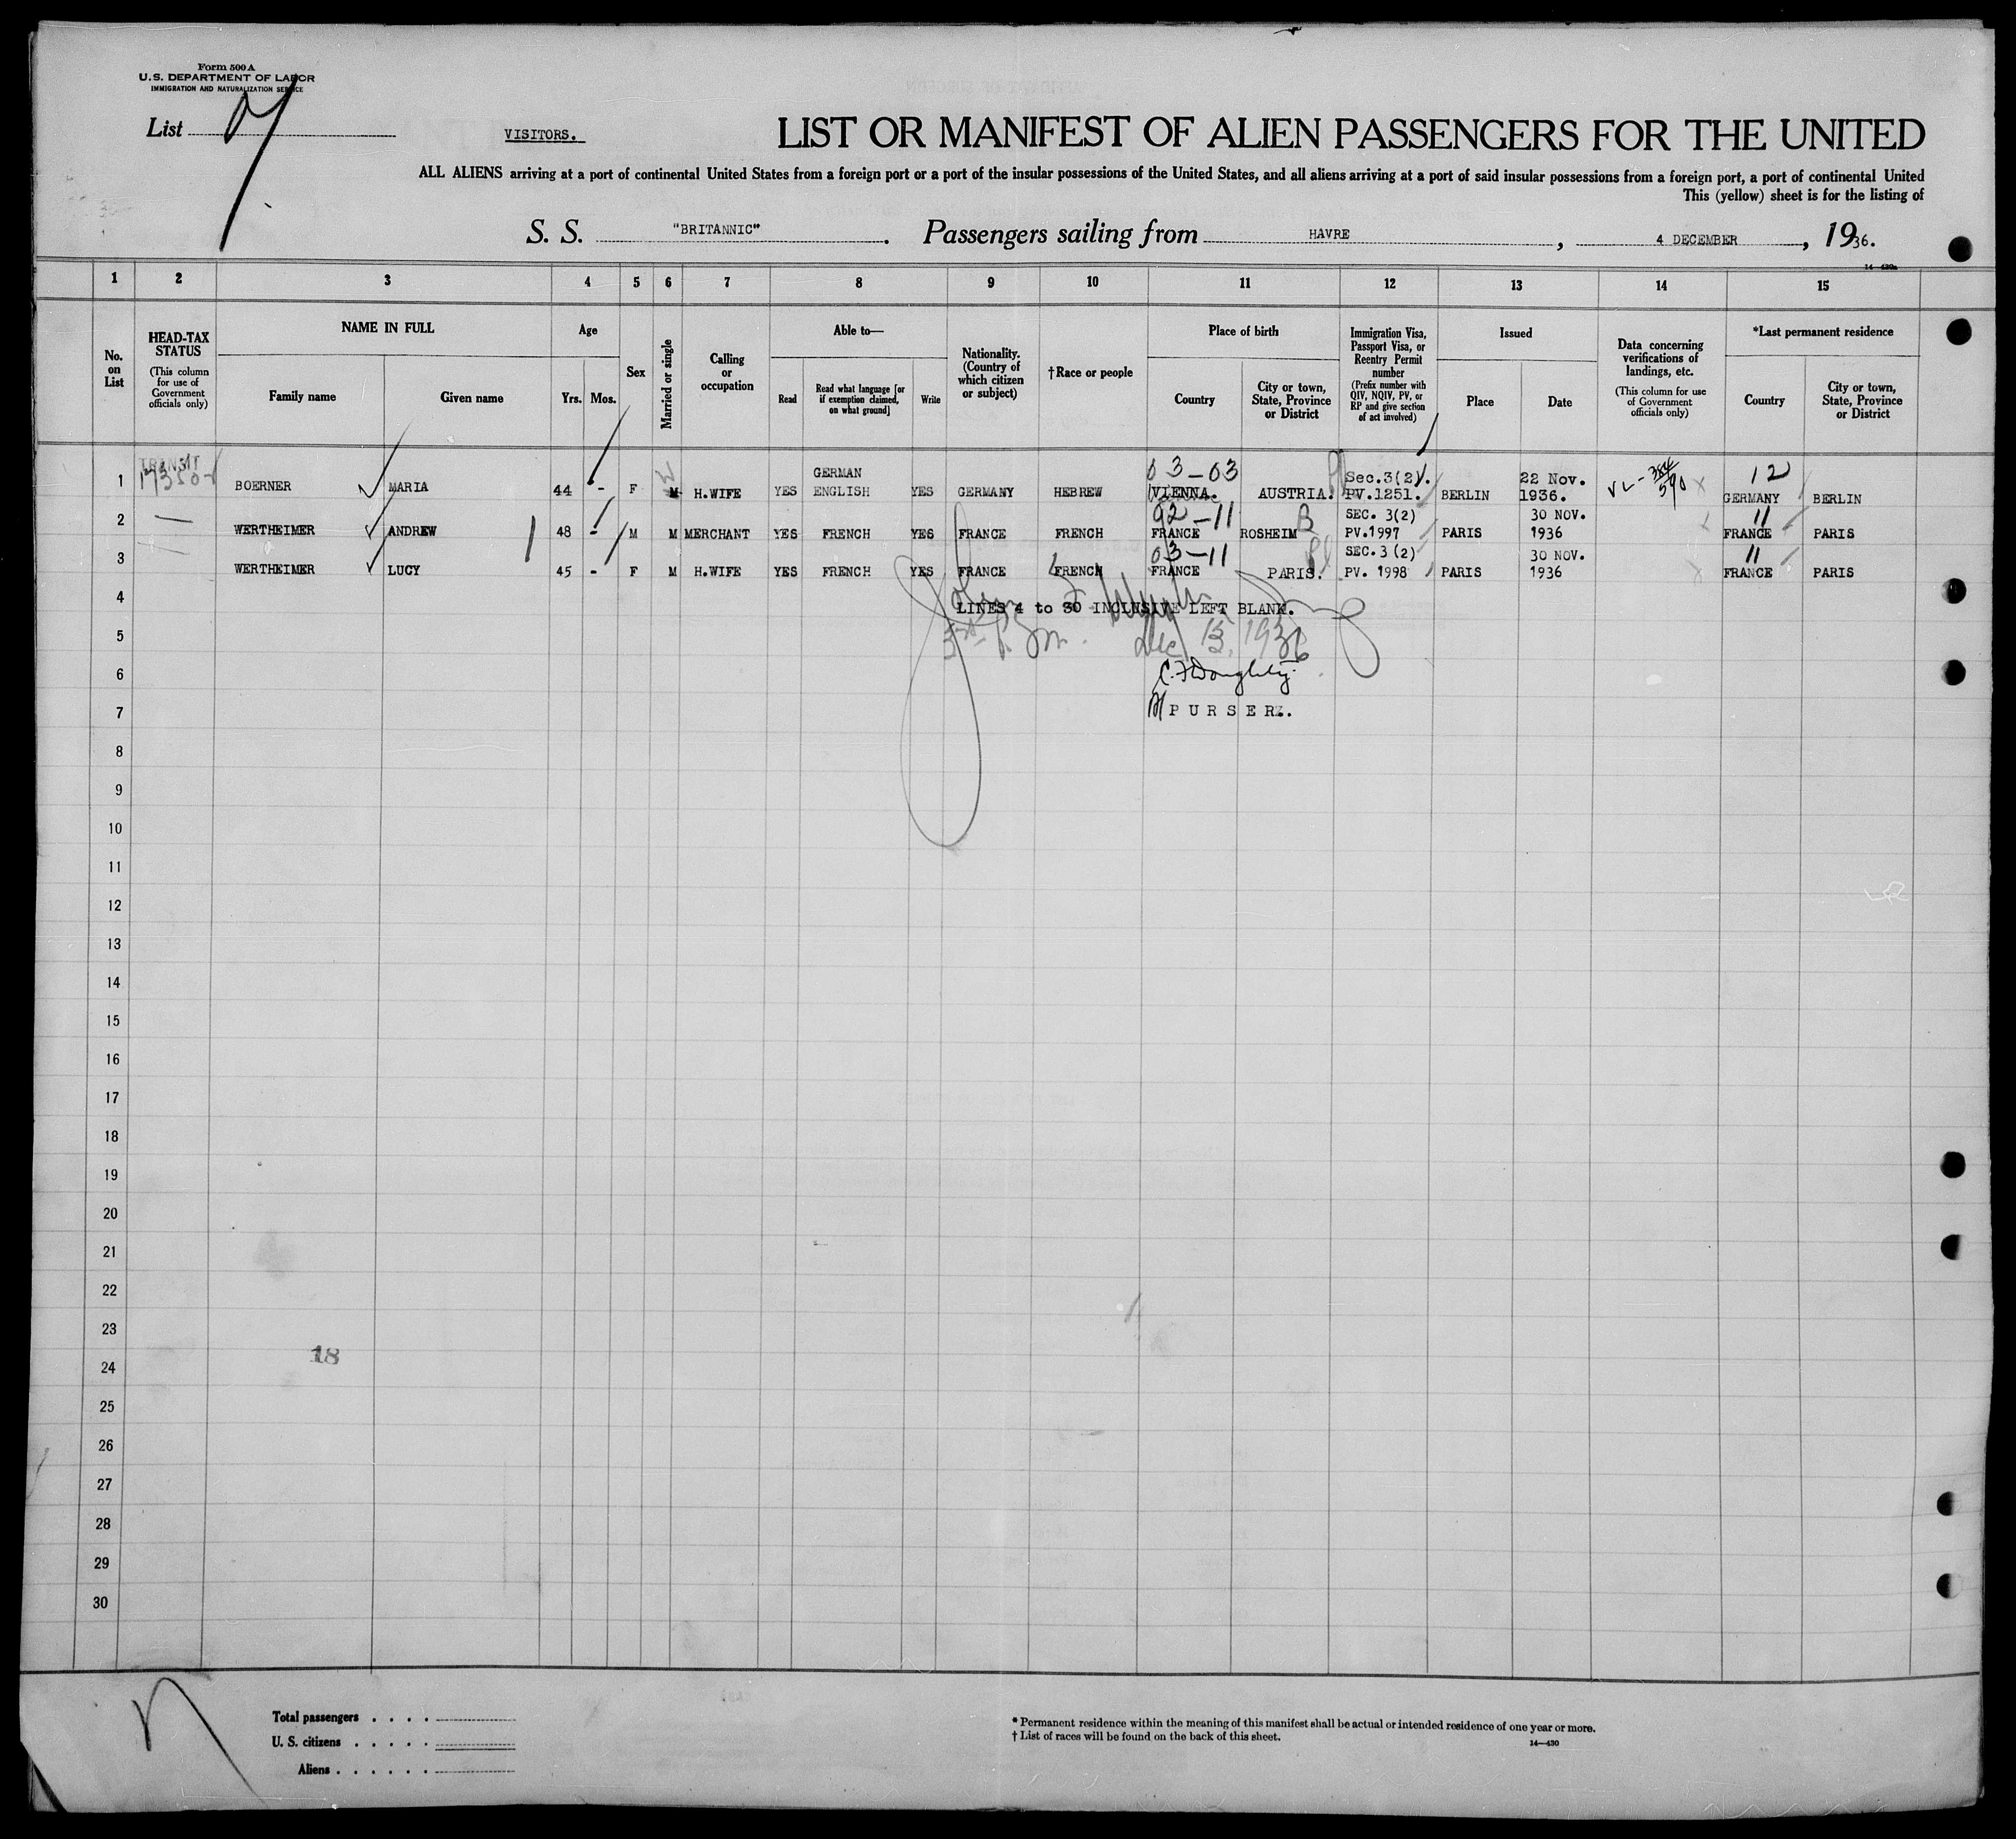 Form 500 A
U.S. DEPARTMENT OF LABOR
IMMIGRATION AND NATURALIZATION SERVICE
List
VISITORS.
LIST OR MANIFEST OF ALIEN PASSENGERS FOR THE UNITED
ALL ALIENS arriving at a port of continental United States from a foreign port or a port of the insular possessions of the United States, and all aliens arriving at a port of said insular possessions from a foreign port, a port of continental United
This (yellow) sheet is for the listing of
S. S. "BRITANNIC". Passengers sailing from HAVRE, 4 DECEMBER, 1936.
14—430a
1 2 3 4 5 6 7 8 9 10 11 12 13 14 15
No. on List
HEAD-TAX STATUS (This column for use of Government officials only)
NAME IN FULL
Family name Given name
Age
Yrs. Mos.
Sex
Married or single
Calling or occupation
Able to—
Read Read what language [or if exemption claimed, on what ground] Write
Nationality. (Country of which citizen or subject)
†Race or people
Place of birth
Country City or town, State, Province or District
Immigration Visa, Passport Visa, or Reentry Permit number (Prefix number with QIV, NQIV, PV, or RP and give section of act involved)
Issued
Place Date
Data concerning verifications of landings, etc. (This column for use of Government officials only)
*Last permanent residence
Country City or town, State, Province or District
TRANSIT GERMAN 03-03 Sec.3(2). 22 Nov. 12
1 BOERNER MARIA 44 - F M H.WIFE YES ENGLISH YES GERMANY HEBREW VIENNA. AUSTRIA. PV.1251. BERLIN 1936. GERMANY BERLIN
92-11 SEC. 3(2) 30 NOV. 11
2 WERTHEIMER ANDREW 48 - M M MERCHANT YES FRENCH YES FRANCE FRENCH FRANCE ROSHEIM PV.1997 PARIS 1936 FRANCE PARIS
03-11 SEC. 3 (2) 30 NOV. 11
3 WERTHEIMER LUCY 45 - F M H.WIFE YES FRENCH YES FRANCE FRENCH FRANCE PARIS. PV. 1998 PARIS 1936 FRANCE PARIS
4 LINES 4 to 30 INCLUSIVE LEFT BLANK.
5 Dec 13, 1936
6
7 PURSER.
8
9
10
11
12
13
14
15
16
17
18
19
20
21
22
23
18
24
25
26
27
28
29
30
Total passengers . . . .
U. S. citizens . . . . .
Aliens . . . . . .
* Permanent residence within the meaning of this manifest shall be actual or intended residence of one year or more.
† List of races will be found on the back of this sheet.
14—430